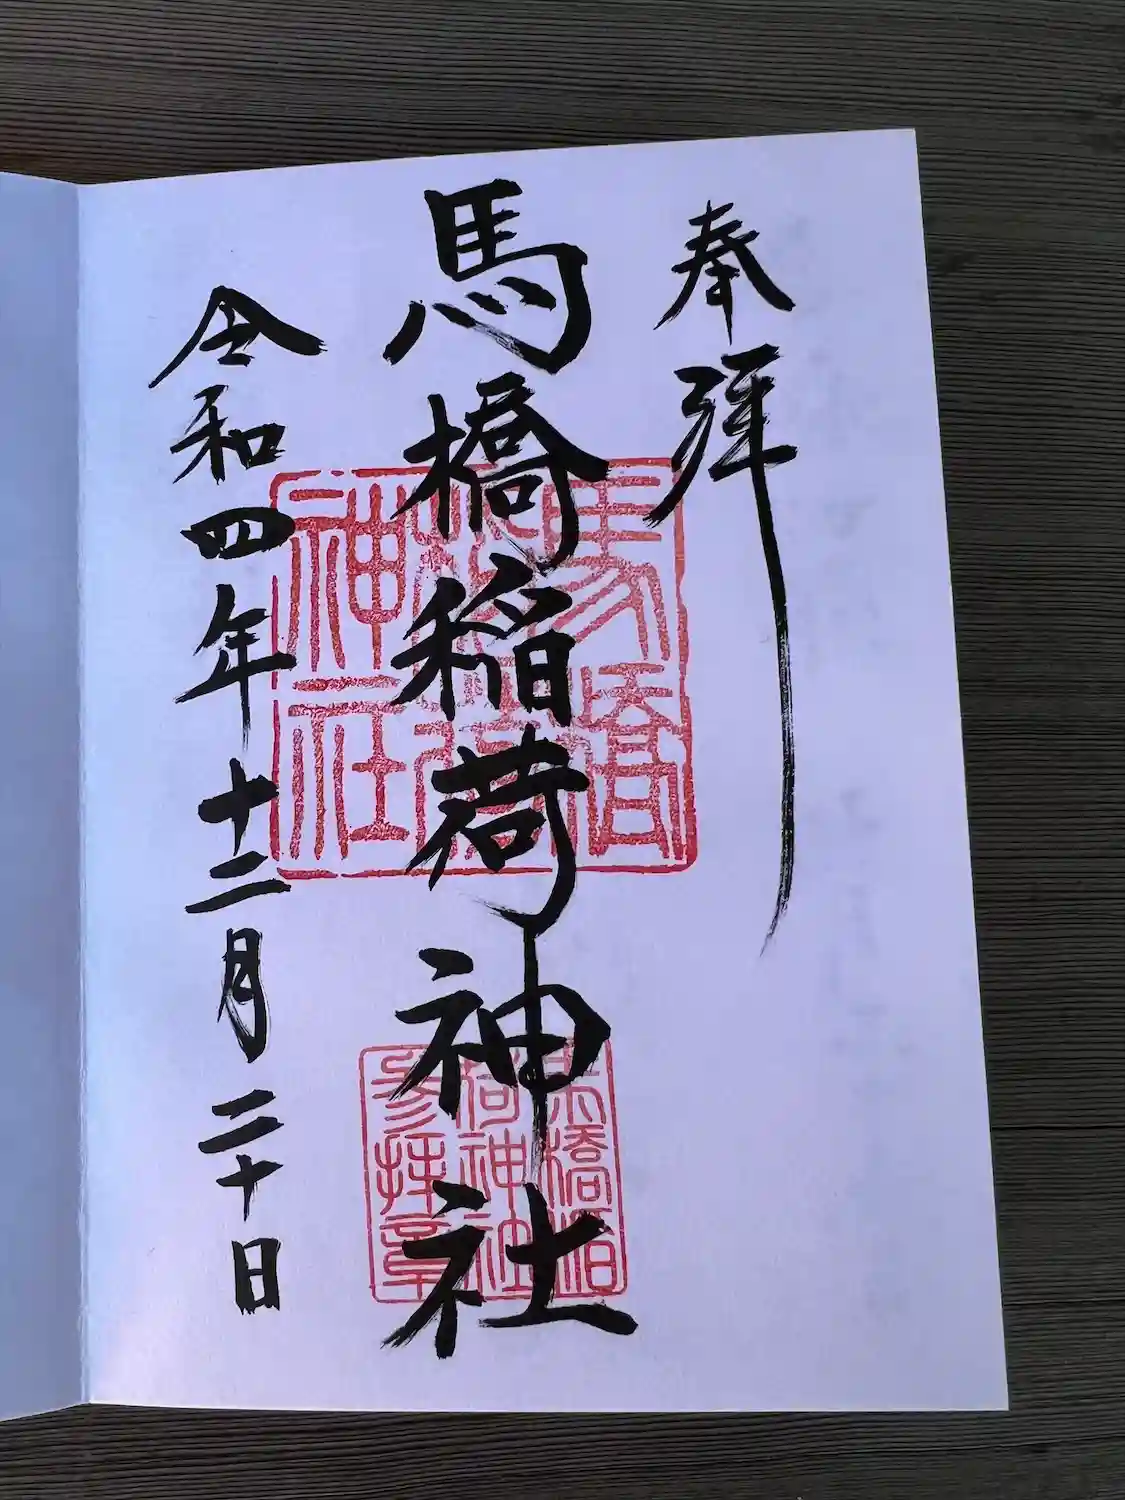 奉拝
馬橋稲荷神社
令和四年十二月二十日
馬橋
稲荷
神社
馬橋稲
荷神社
参拝章